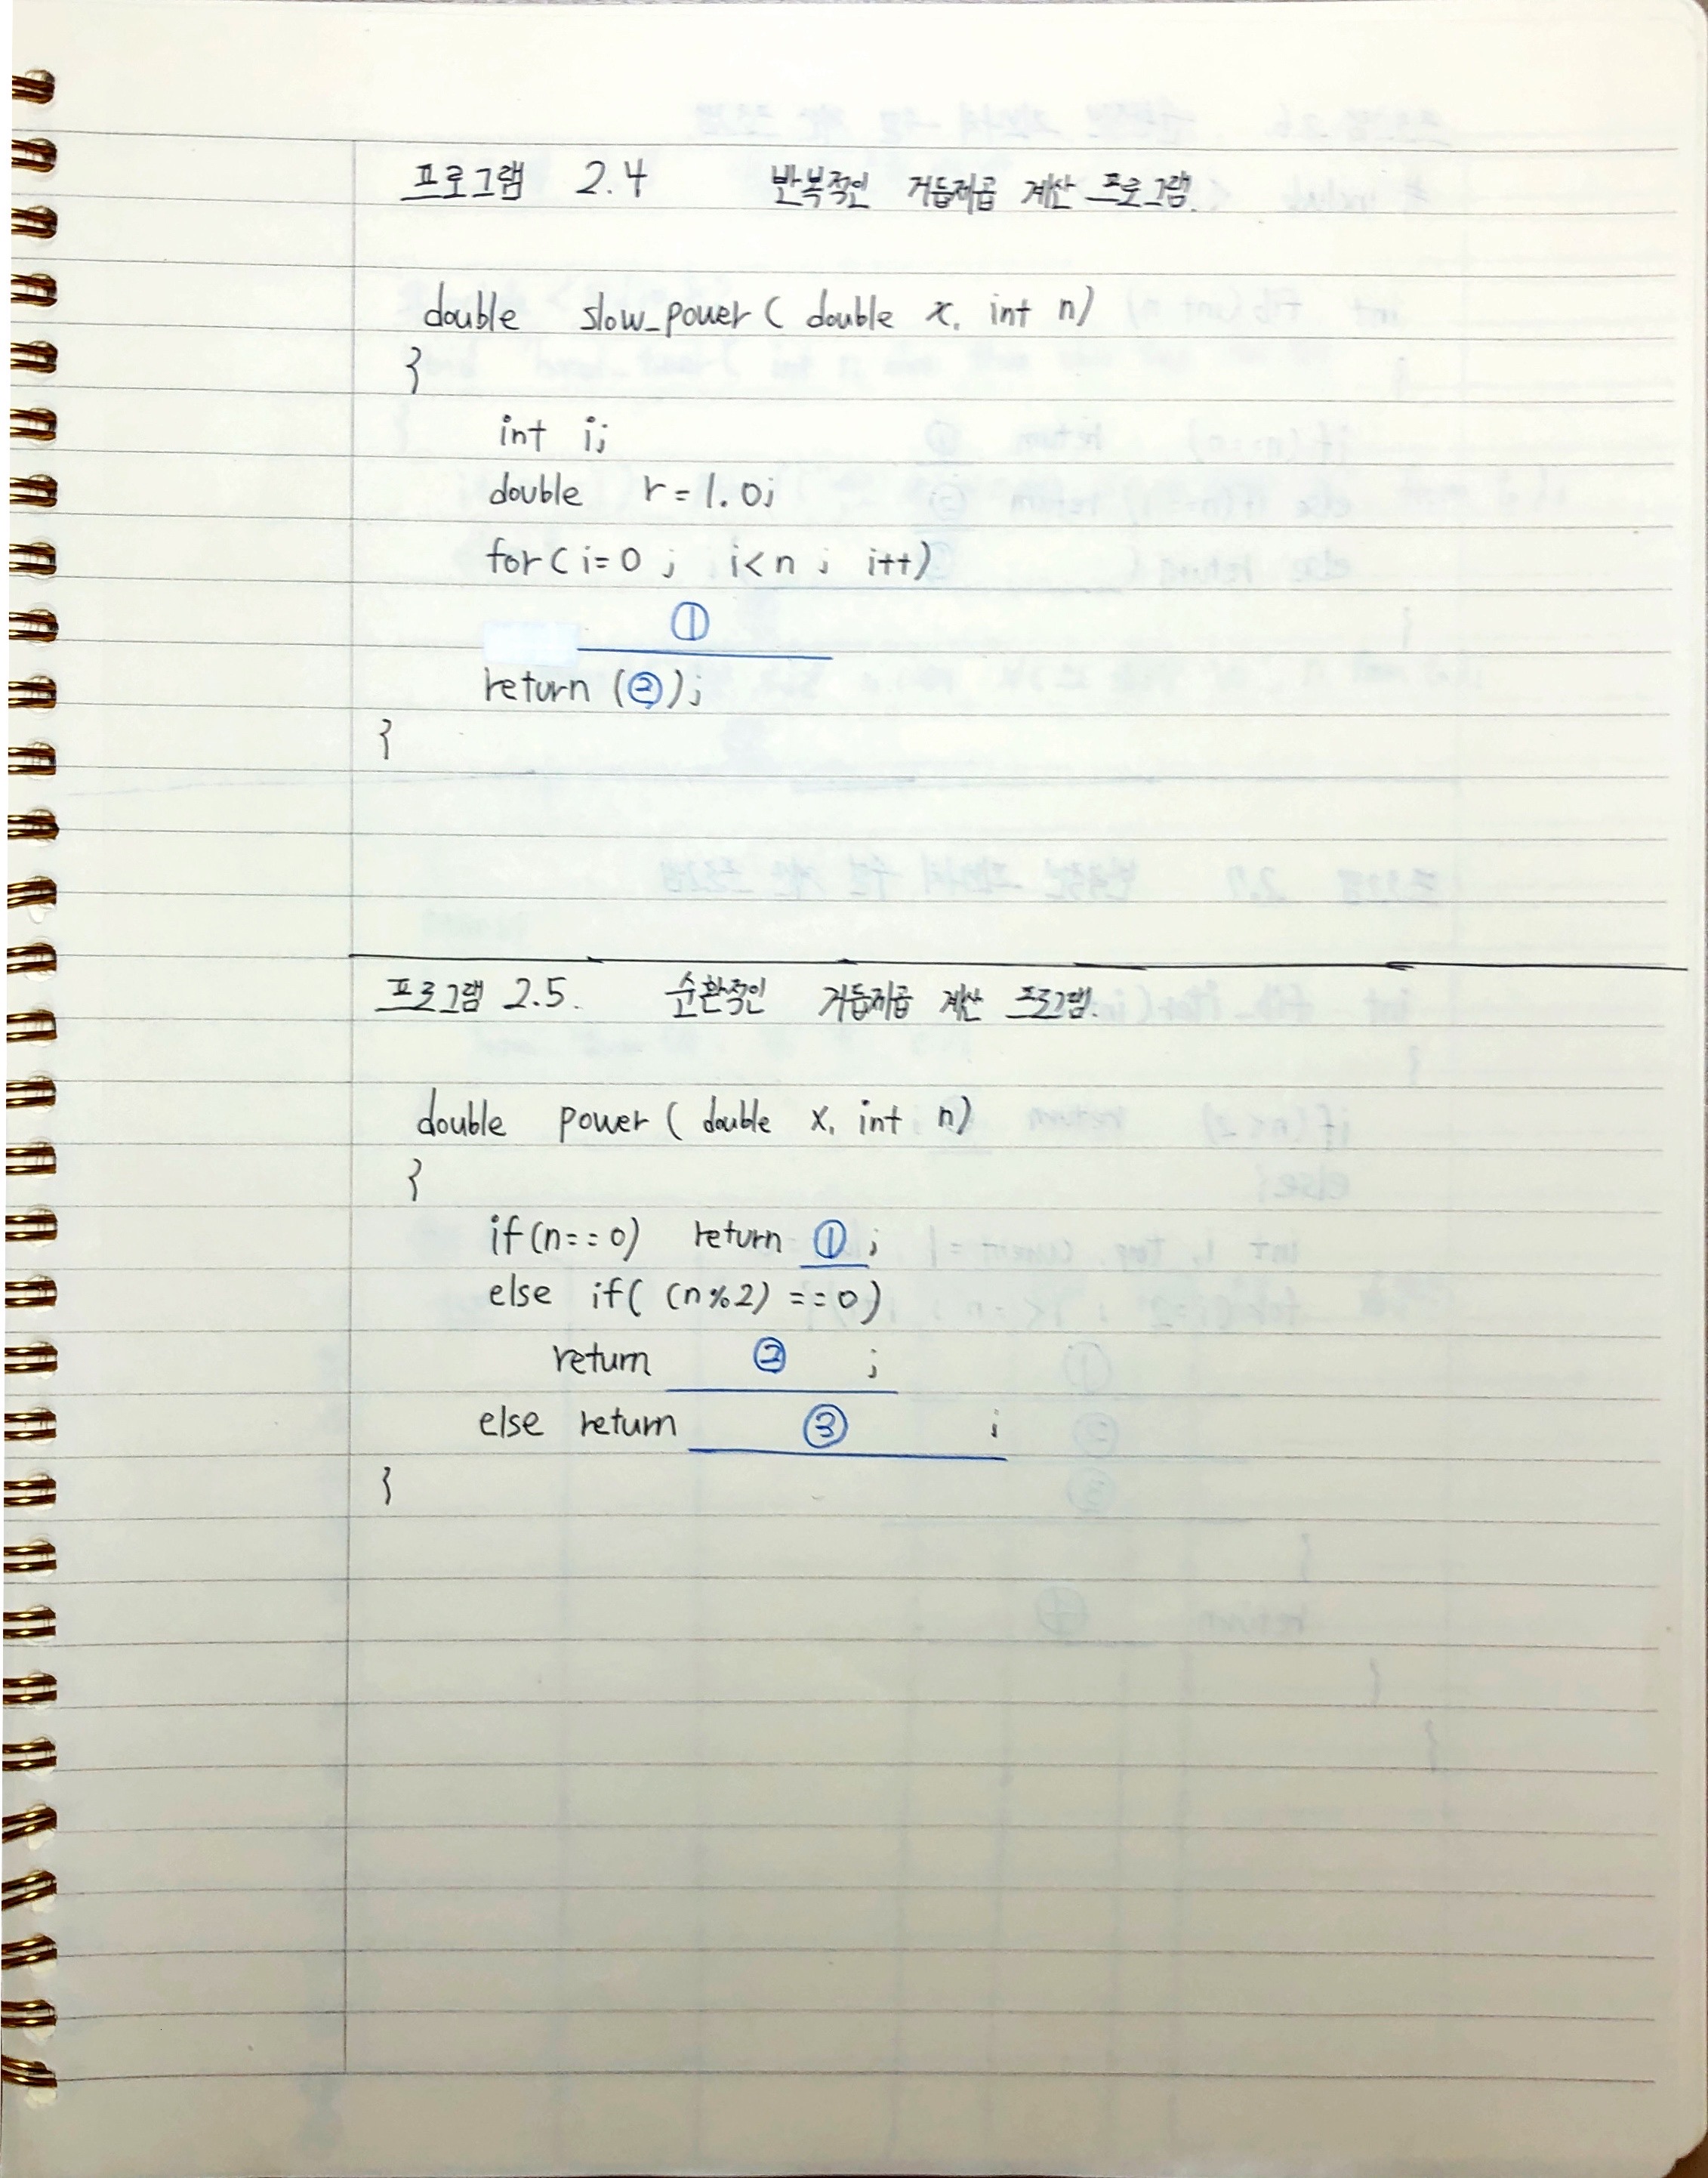 프로그램 2.4 반복적인 거듭제곱 계산 프로그램.
double slow_power ( double x, int n)
}
int i;
double r = 1.0;
for ( i=0 ; i<n ; i++)
①
return (②);
}
프로그램 2.5. 순환적인 거듭제곱 계산 프로그램.
double power ( double x, int n)
}
if (n==0) return ① ;
else if ( (n%2) ==0)
return ② ;
else return ③ ;
}